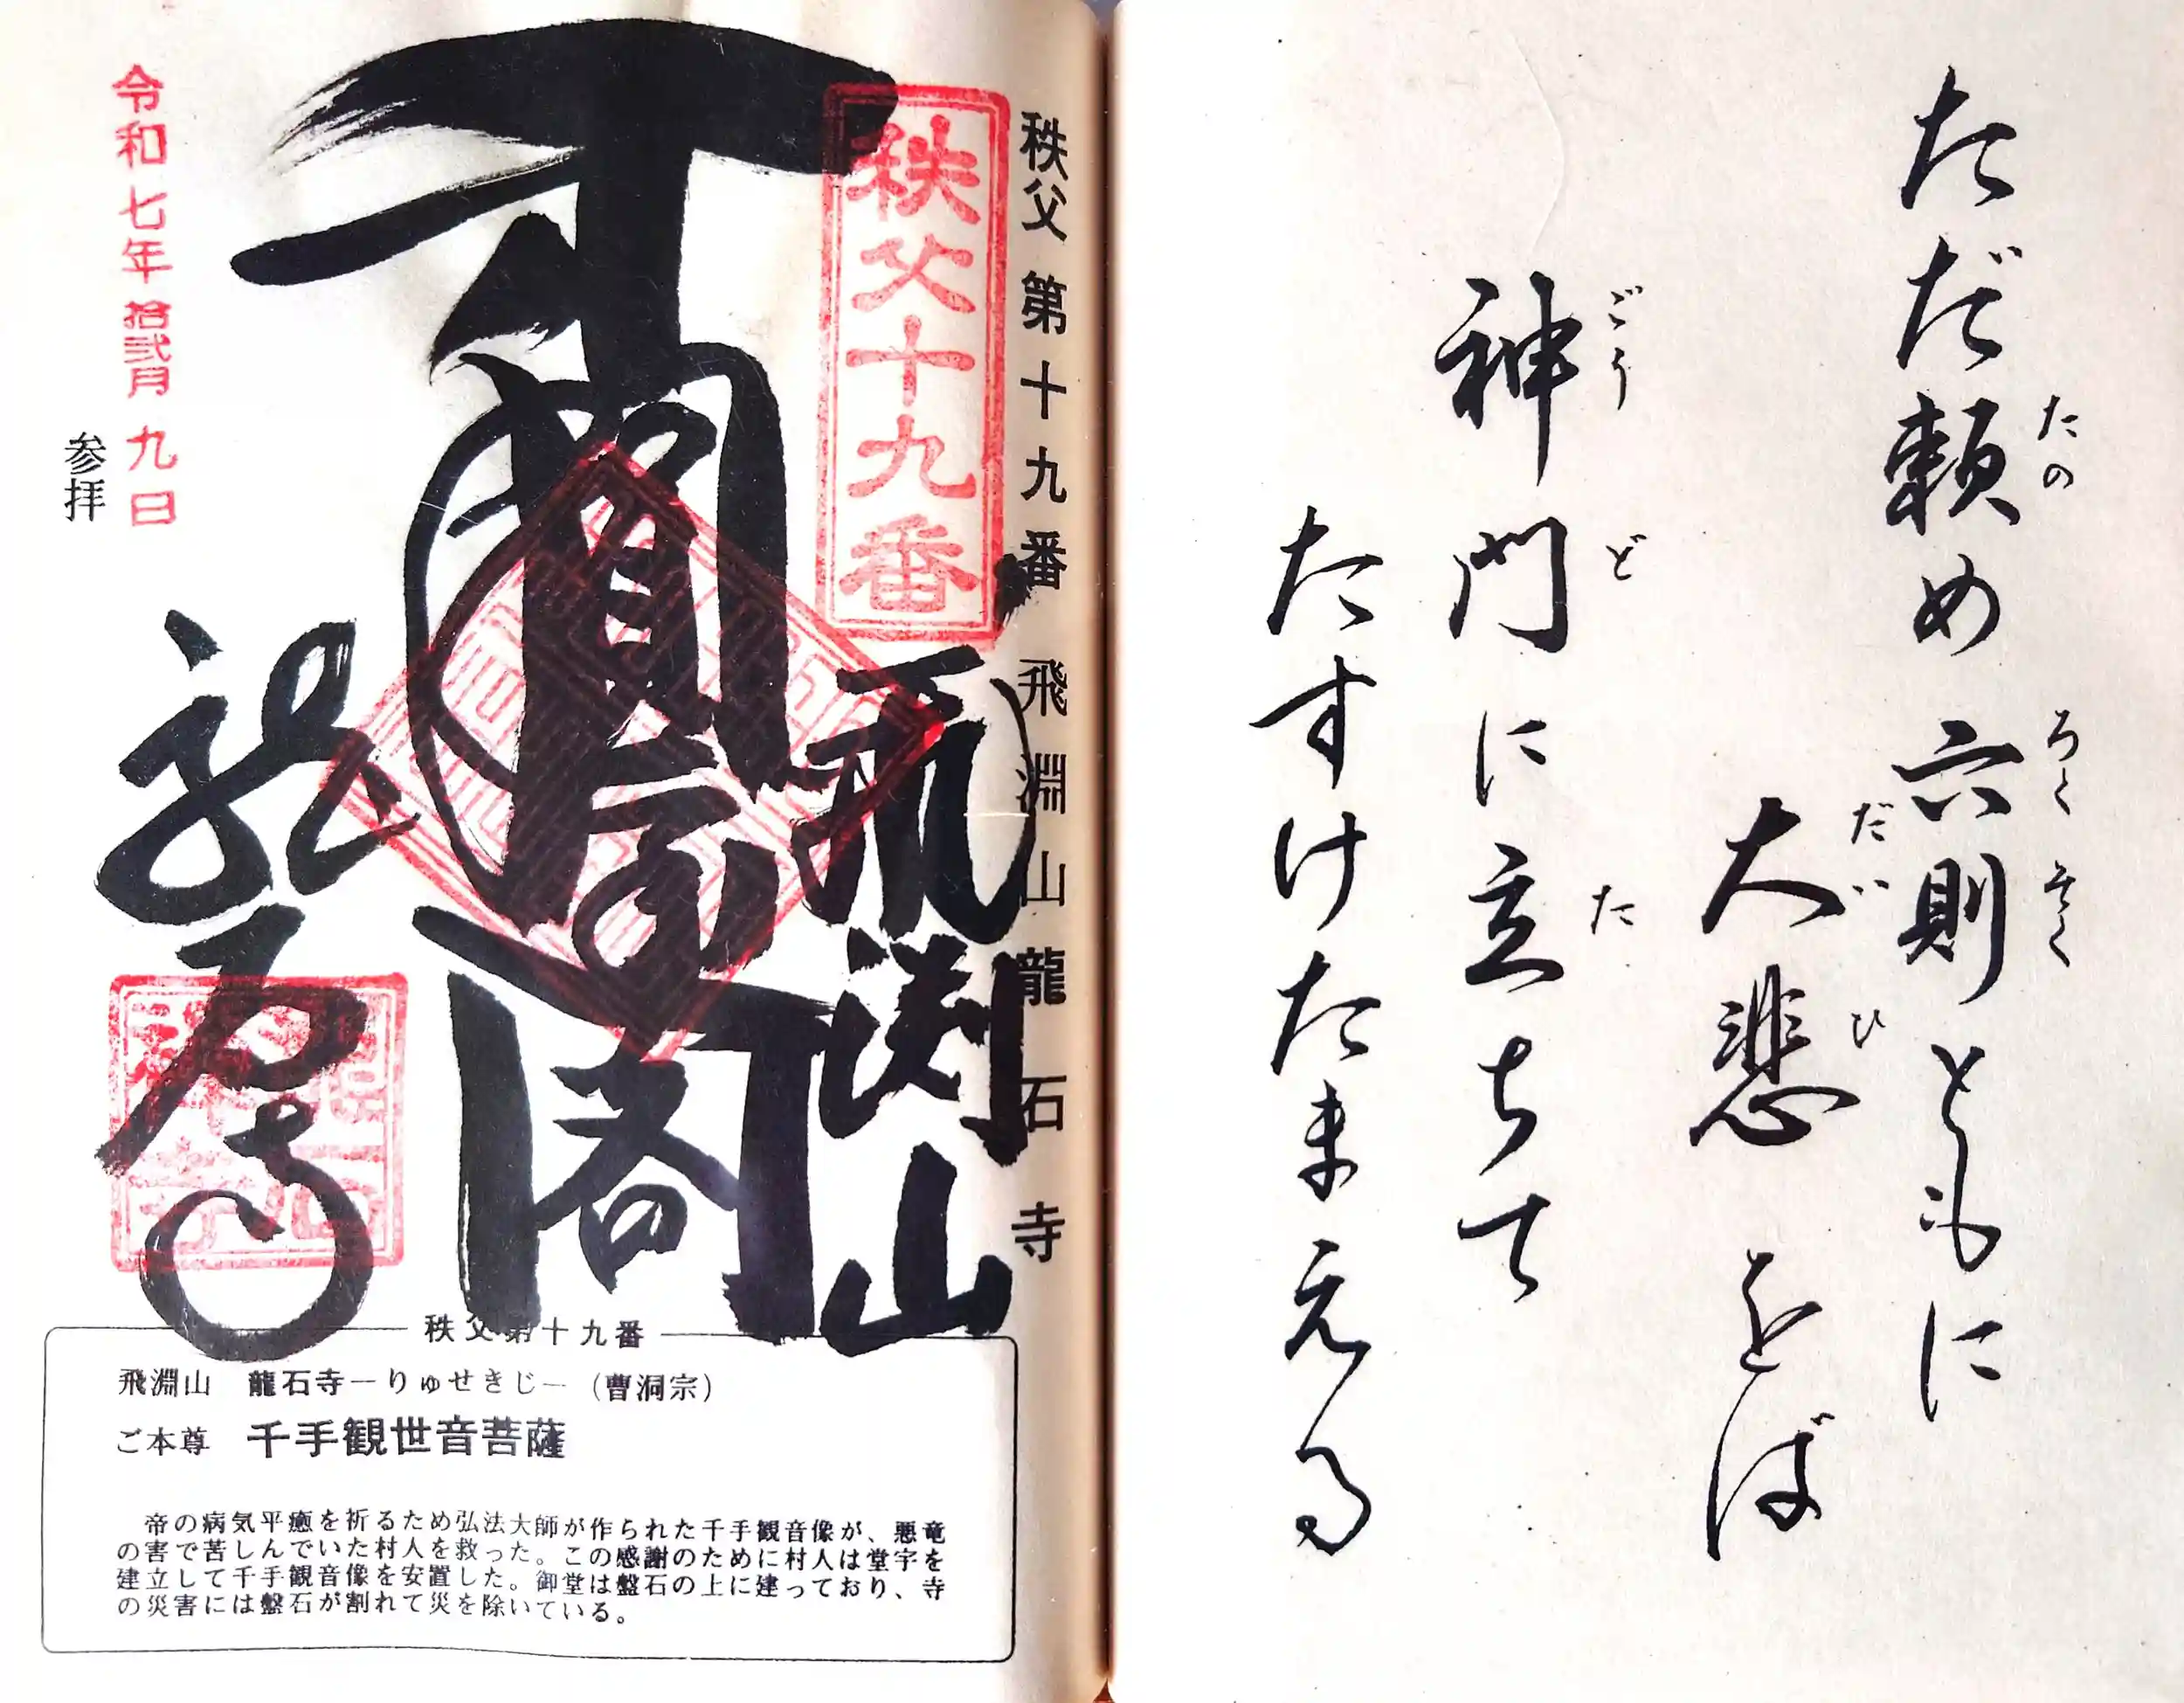 ただ頼め六則ともに
たの ろくそく
大悲をば
だいひ
神門に立ちて
ごうど た
たすけたまえる
秩父第十九番 飛淵山 龍石寺
秩父十九番
飛渕山
千手
閣
龍石寺
令和七年拾弐月九日
参拝
秩父第十九番
飛淵山 龍石寺―りゅせきじ―(曹洞宗)
ご本尊 千手観世音菩薩
帝の病気平癒を祈るため弘法大師が作られた千手観音像が、悪竜
の害で苦しんでいた村人を救った。この感謝のために村人は堂宇を
建立して千手観音像を安置した。御堂は盤石の上に建っており、寺
の災害には盤石が割れて災を除いている。